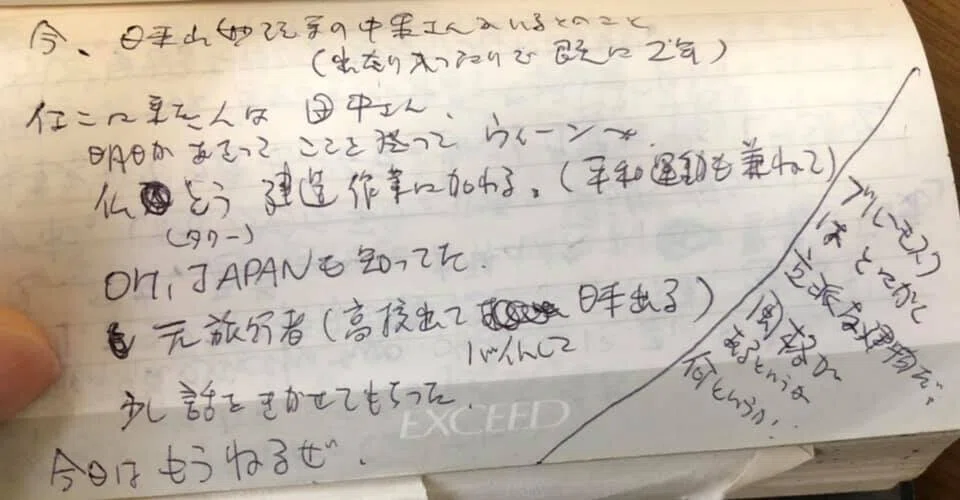 今、日本山妙法寺の中の中さんがいるとのこと
(出たり入ったりで既に2年)
ここに来た人は 田中さん、
明日か あさって ここを発って ウィーンへ
仏とう 建造作業に加わる。(平和運動も兼ねて)
(タワー)
Oh, JAPANも知ってた。
元旅行者(高校出て 日本出る)
バイトして
少し話をきかせてもらった。
今日は もうねるぜ。
は とにかく
立派な建物だ。
あるというか
何というか…
EXCEED